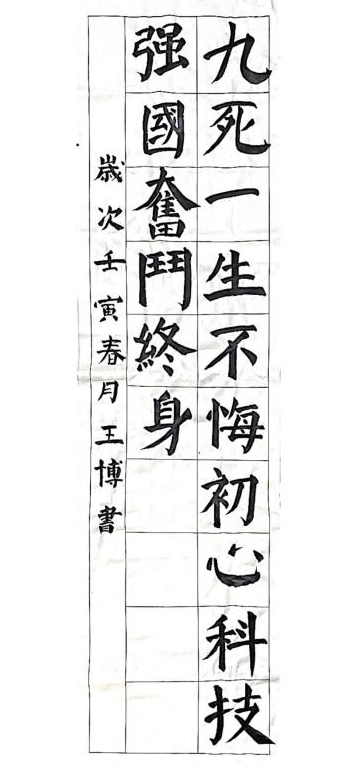 九死一生不悔初心科技
强國奮鬥終身
歲次壬寅春月王博書